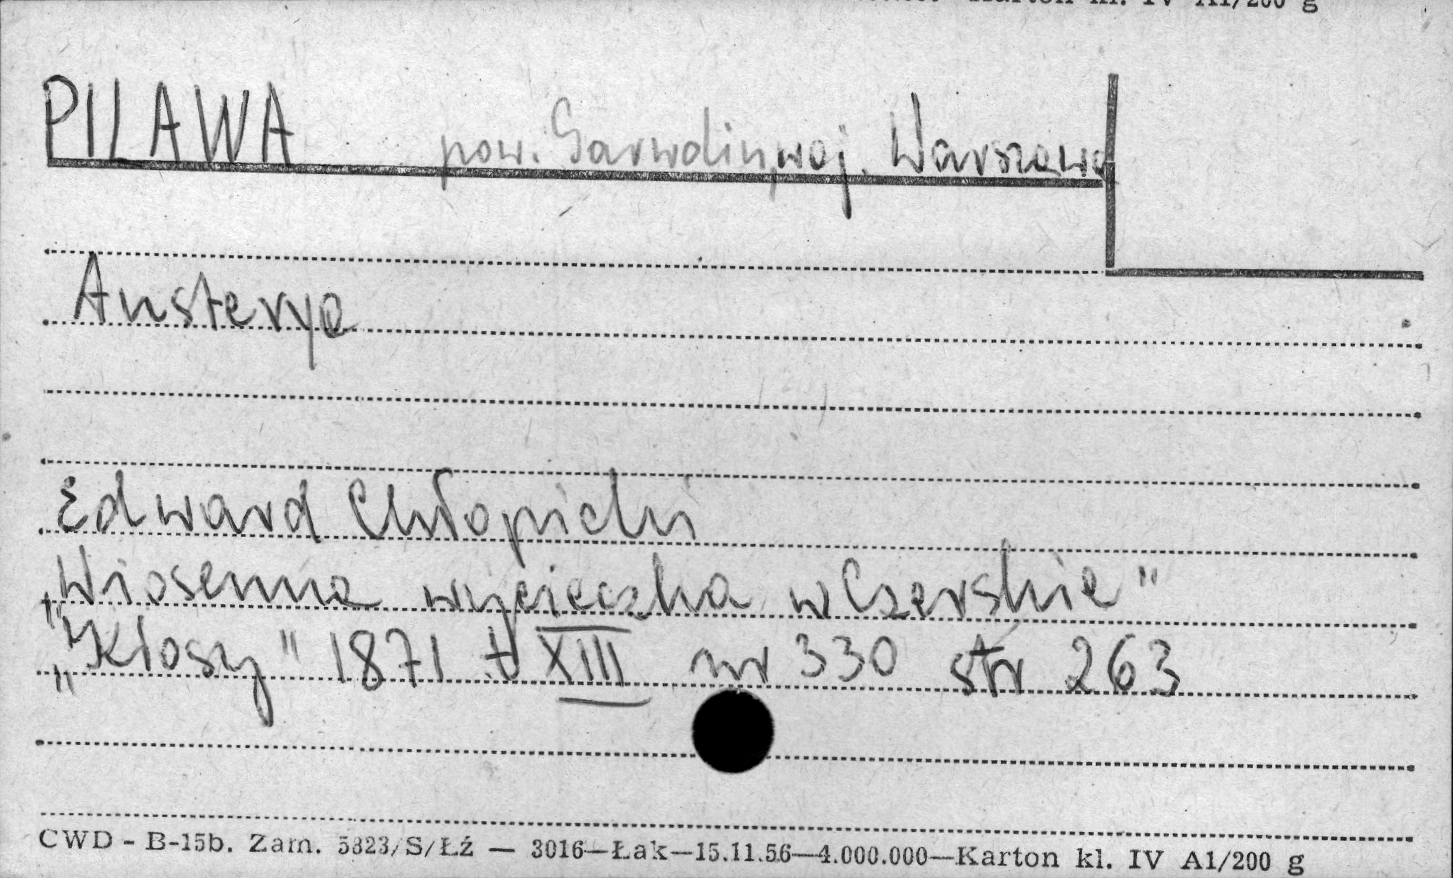 PILAWA pow. Garwolin, woj. Warszawa
Austerya
Edward Chłopicki
„Wiosenna wycieczka w Czerskie"
„Kłosy" 1871 t XIII nr 330 str 263
CWD - B-15b. Zam. 5823/S/Łź — 3016—Łak—15.11.56—4.000.000—Karton kl. IV A1/200 g